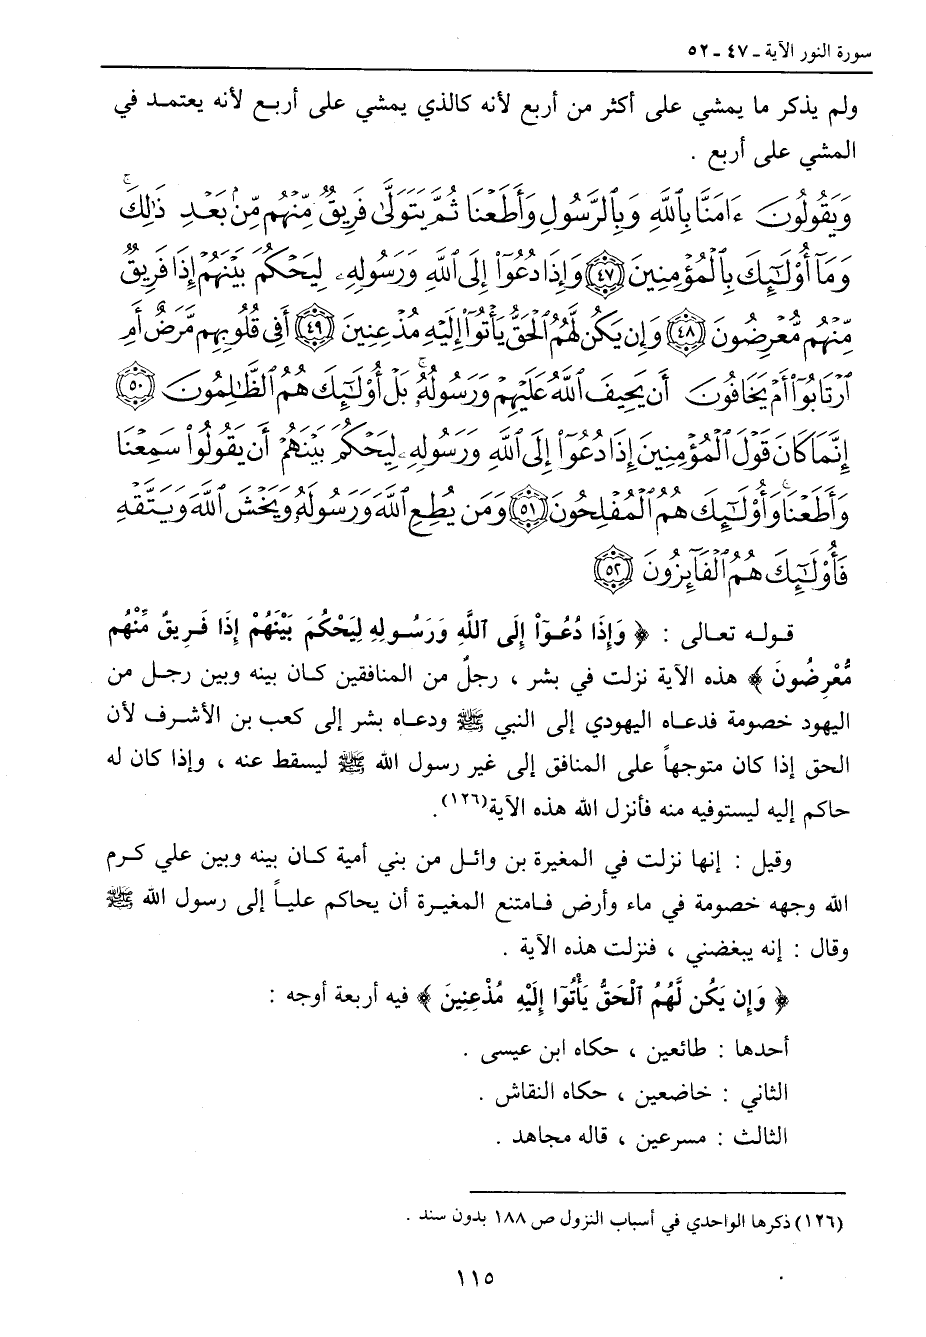 سورة النور الآية ـ ٤٧ ـ ٥٢
ولم يذكر ما يمشي على أكثر من أربع لأنه كالذي يمشي على أربع لأنه يعتمد في
المشي على أربع .
وَيَقُولُونَ ءَامَنَّا بِٱللَّهِ وَبِٱلرَّسُولِ وَأَطَعْنَا ثُمَّ يَتَوَلَّىٰ فَرِيقٌ مِّنْهُم مِّنۢ بَعْدِ ذَٰلِكَۚ
وَمَآ أُو۟لَـٰٓئِكَ بِٱلْمُؤْمِنِينَ ﴿٤٧﴾ وَإِذَا دُعُوٓا۟ إِلَى ٱللَّهِ وَرَسُولِهِۦ لِيَحْكُمَ بَيْنَهُمْ إِذَا فَرِيقٌ
مِّنْهُم مُّعْرِضُونَ ﴿٤٨﴾ وَإِن يَكُن لَّهُمُ ٱلْحَقُّ يَأْتُوٓا۟ إِلَيْهِ مُذْعِنِينَ ﴿٤٩﴾ أَفِى قُلُوبِهِم مَّرَضٌ أَمِ
ٱرْتَابُوٓا۟ أَمْ يَخَافُونَ أَن يَحِيفَ ٱللَّهُ عَلَيْهِمْ وَرَسُولُهُۥۚ بَلْ أُو۟لَـٰٓئِكَ هُمُ ٱلظَّـٰلِمُونَ ﴿٥٠﴾
إِنَّمَا كَانَ قَوْلَ ٱلْمُؤْمِنِينَ إِذَا دُعُوٓا۟ إِلَى ٱللَّهِ وَرَسُولِهِۦ لِيَحْكُمَ بَيْنَهُمْ أَن يَقُولُوا۟ سَمِعْنَا
وَأَطَعْنَاۚ وَأُو۟لَـٰٓئِكَ هُمُ ٱلْمُفْلِحُونَ ﴿٥١﴾ وَمَن يُطِعِ ٱللَّهَ وَرَسُولَهُۥ وَيَخْشَ ٱللَّهَ وَيَتَّقْهِ
فَأُو۟لَـٰٓئِكَ هُمُ ٱلْفَآئِزُونَ ﴿٥٢﴾
قوله تعالى : ﴿ وَإِذَا دُعُوٓاْ إِلَى ٱللَّهِ وَرَسُولِهِ لِيَحْكُمَ بَيْنَهُمْ إِذَا فَرِيقٌ مِّنْهُم
مُّعْرِضُونَ ﴾ هذه الآية نزلت في بشر ، رجلٌ من المنافقين كان بينه وبين رجل من
اليهود خصومة فدعاه اليهودي إلى النبي ﷺ ودعاه بشر إلى كعب بن الأشرف لأن
الحق إذا كان متوجهاً على المنافق إلى غير رسول الله ﷺ ليسقط عنه ، وإذا كان له
حاكم إليه ليستوفيه منه فأنزل الله هذه الآية(١٢٦).
وقيل : إنها نزلت في المغيرة بن وائل من بني أمية كان بينه وبين علي كرم
الله وجهه خصومة في ماء وأرض فامتنع المغيرة أن يحاكم علياً إلى رسول الله ﷺ
وقال : إنه يبغضني ، فنزلت هذه الآية .
﴿ وَإِن يَكُن لَّهُمُ ٱلْحَقُّ يَأْتُوٓا إِلَيْهِ مُذْعِنِينَ ﴾ فيه أربعة أوجه :
أحدها : طائعين ، حكاه ابن عيسى .
الثاني : خاضعين ، حكاه النقاش .
الثالث : مسرعين ، قاله مجاهد .
(١٢٦) ذكرها الواحدي في أسباب النزول ص ١٨٨ بدون سند .
١١٥